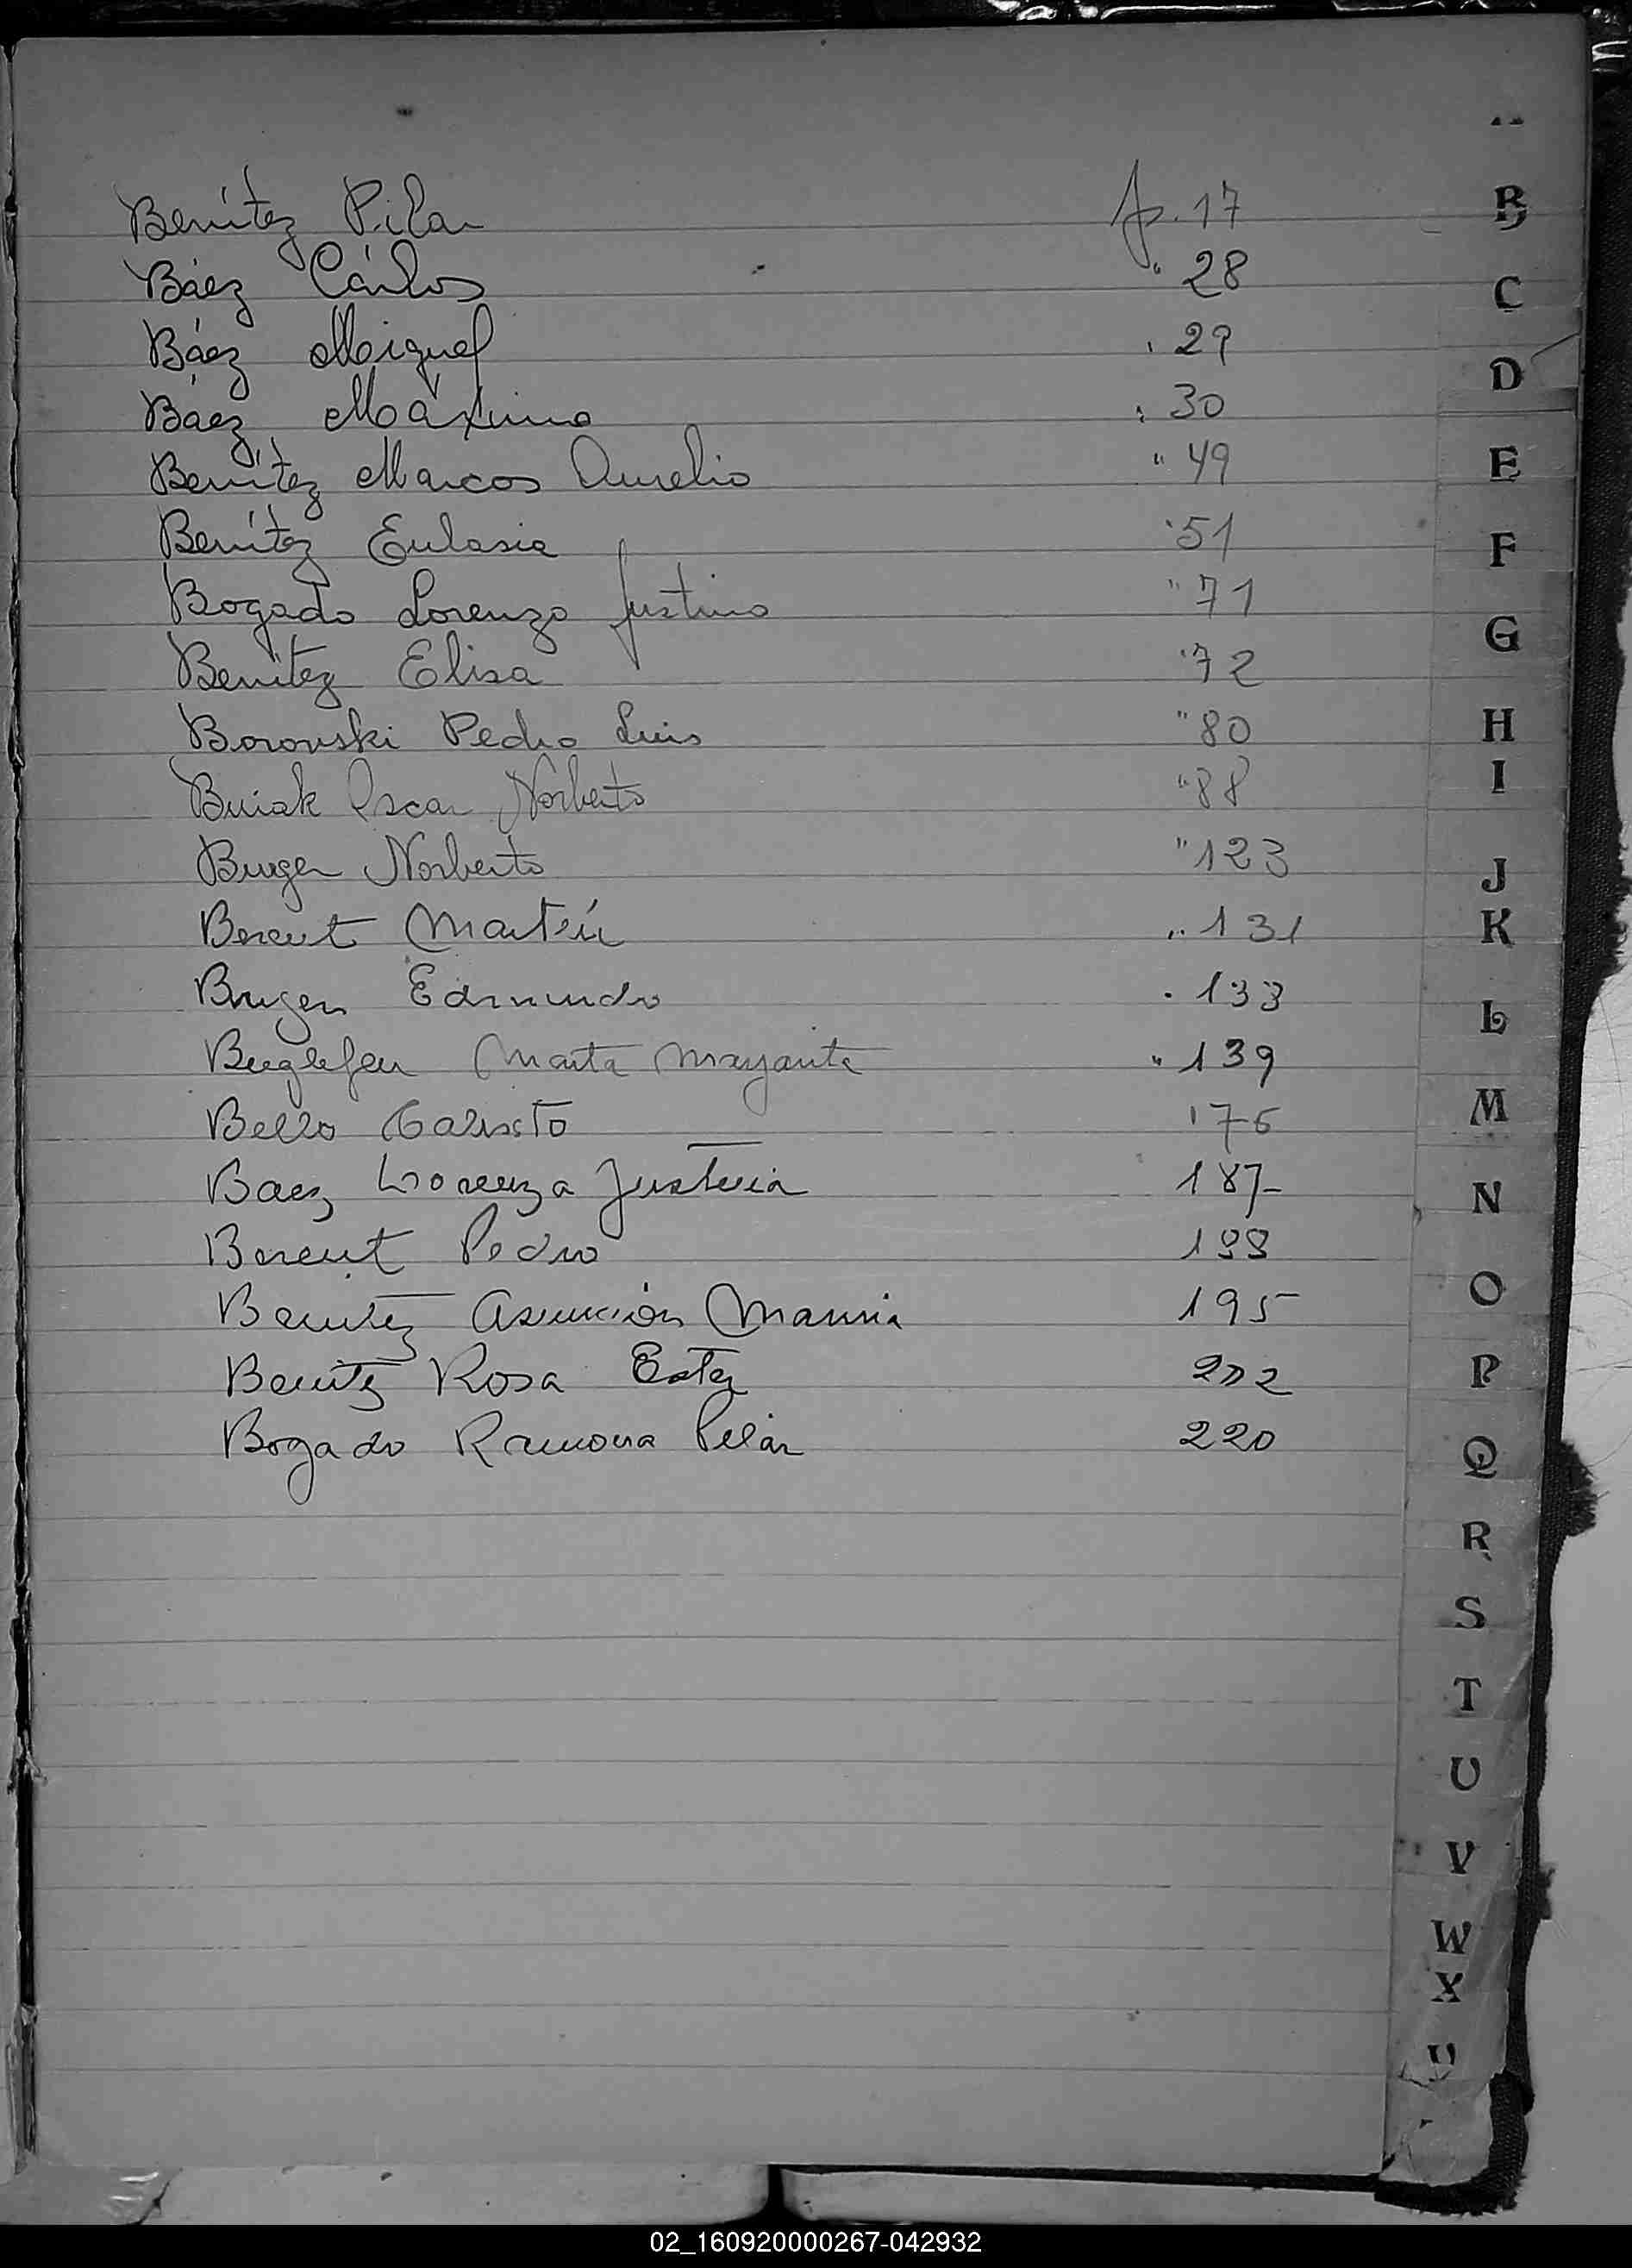 Benítez Pilar fs. 17
Báez Cárlos " 28
Báez Miguel " 29
Báez Máximo " 30
Benítez Marcos Aurelio " 49
Benítez Eulasia " 51
Bogado Lorenzo Justino " 71
Benítez Elisa " 72
Borovski Pedro Luis " 80
Buiak Oscar Norberto " 88
Burger Norberto " 123
Berent Martín " 131
Edmundo " 133
Marta " 139
Bello Calixto 176
Baez Lorenza Justina 187
Berent Pedro
Benitez Asunción 195
Benitez Rosa Ester 202
Bogado Ramona Pilar 220
B
C
D
E
F
G
H
I
J
K
L
M
N
O
P
Q
R
S
T
U
V
W
X
02_160920000267-042932